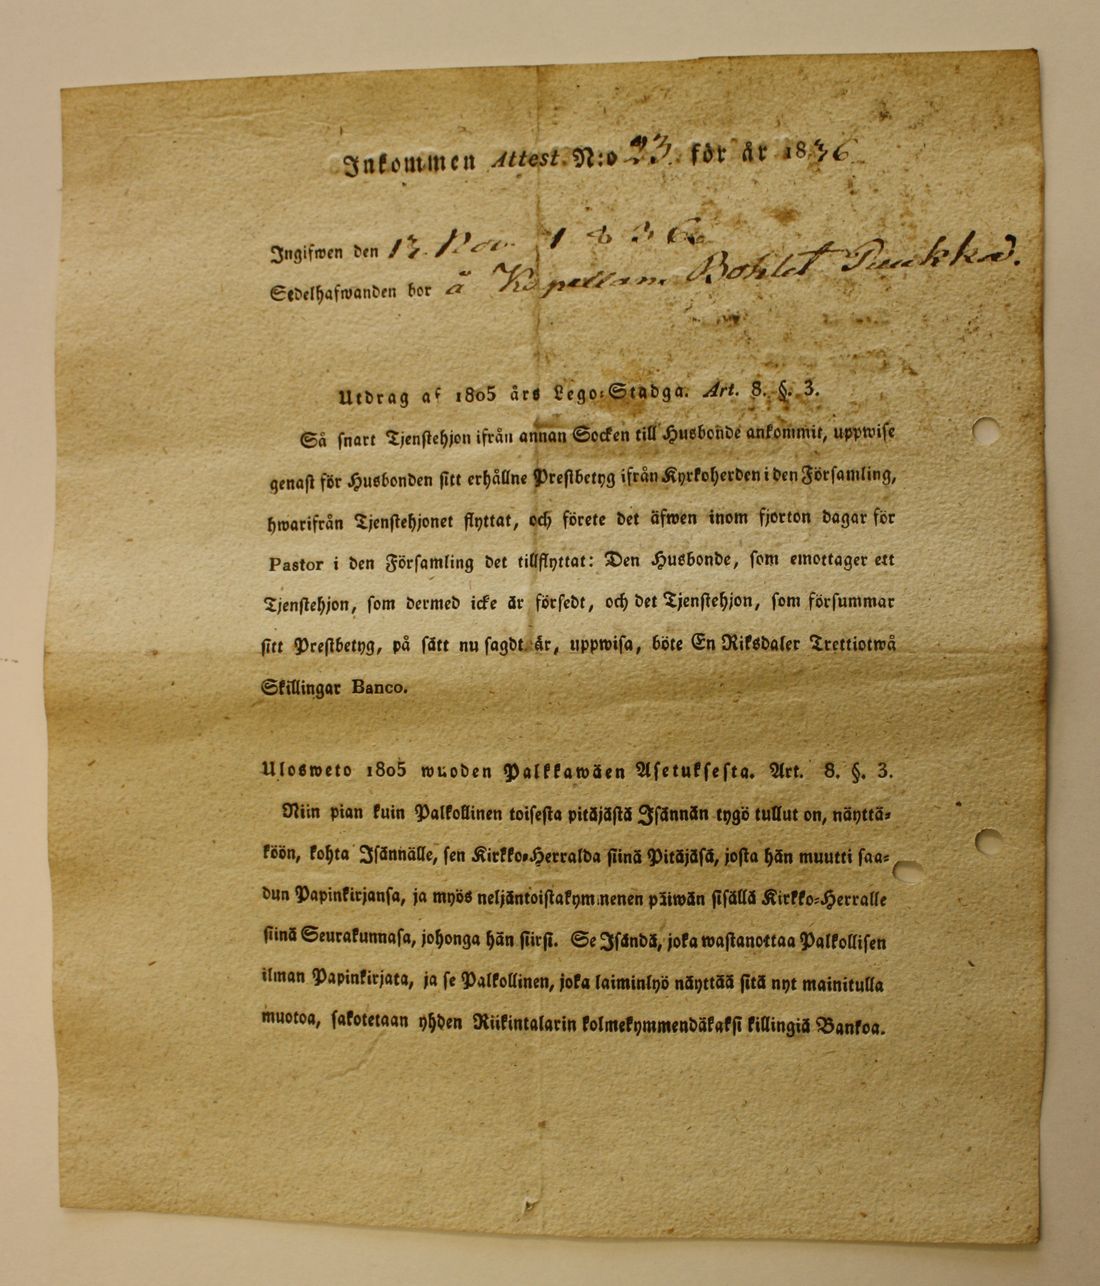 Inkommen Attest. N:o 23. för år 1836
Ingifwen den 13. Nov. 1836
Sedelhafwanden bor å Kapellans Bohlet
Utdrag af 1805 års Lego-Stadga. Art. 8. §. 3.
Så snart Tjenstehjon ifrån annan Socken till Husbonde ankommit, uppwise
genast för Husbonden sitt erhållne Prestbetyg ifrån Kyrkoherden i den Församling,
hwarifrån Tjenstehjonet flyttat, och förete det äfwen inom fjorton dagar för
Pastor i den Församling det tillflyttat: Den Husbonde, som emottager ett
Tjenstehjon, som dermed icke är försedt, och det Tjenstehjon, som försummar
sitt Prestbetyg, på sätt nu sagdt är, uppwisa, böte En Riksdaler Trettiotwå
Skillingar Banco.
Ulosweto 1805 wuoden Palkkawäen Asetuksesta. Art. 8. §. 3.
Niin pian kuin Palkollinen toisesta pitäjästä Isännän tygö tullut on, näyttä-
köön, kohta Isännälle, sen Kirkko-Herralda siinä Pitäjäsä, josta hän muutti saa-
dun Papinkirjansa, ja myös neljäntoistakymmenen päiwän sisällä Kirkko-Herralle
siinä Seurakunnasa, johonga hän siirsi. Se Isändä, joka wastanottaa Palkollisen
ilman Papinkirjata, ja se Palkollinen, joka laiminlyö näyttää sitä nyt mainitulla
muotoa, sakotetaan yhden Riikintalarin kolmekymmendäkaksi killingiä Bankoa.